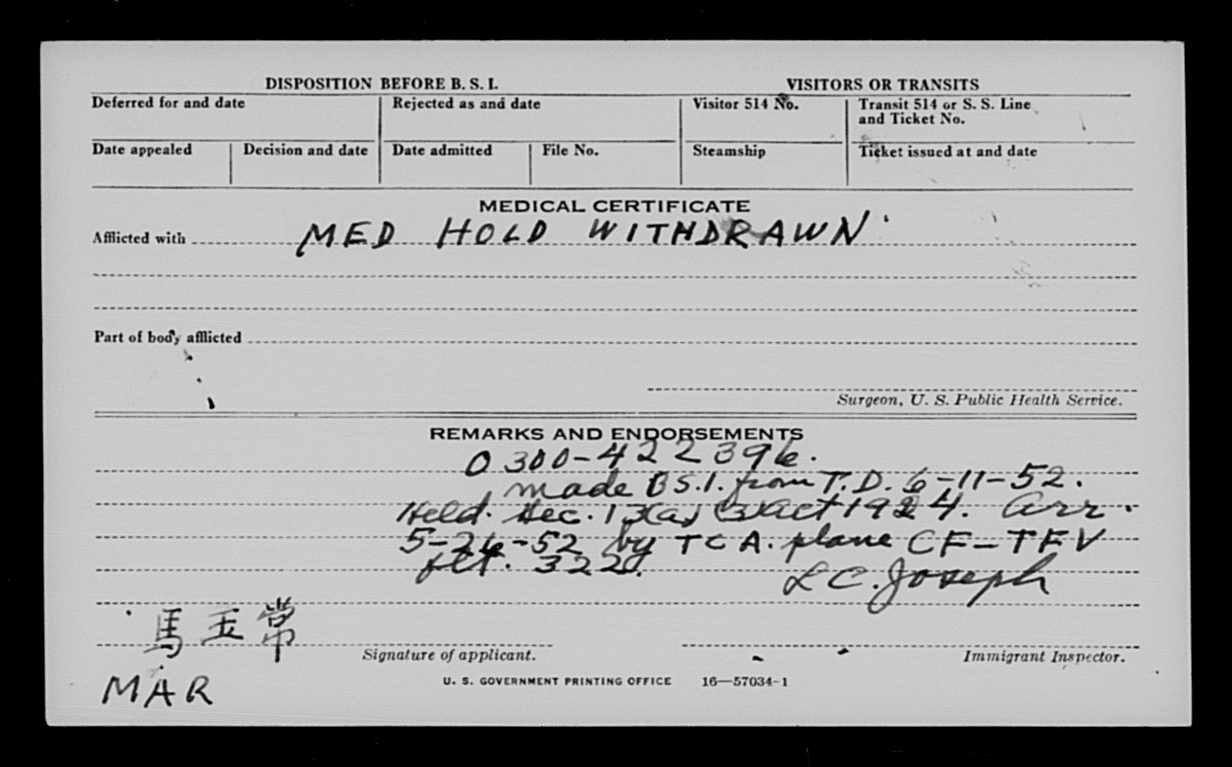 DISPOSITION BEFORE B. S. I. VISITORS OR TRANSITS
Deferred for and date Rejected as and date Visitor 514 No. Transit 514 or S. S. Line and Ticket No.
Date appealed Decision and date Date admitted File No. Steamship Ticket issued at and date
MEDICAL CERTIFICATE
Afflicted with MED HOLD WITHDRAWN
Part of body afflicted
Surgeon, U. S. Public Health Service.
REMARKS AND ENDORSEMENTS
0300-422396.
made B.S.I. from T.D. 6-11-52.
Held. Sec. 13(a)(3) act 1924. Arr.
5-26-52 by TCA. plane CF-TFV
flt. 322.
L C. Joseph
馬玉常
Signature of applicant. Immigrant Inspector.
MAR
U. S. GOVERNMENT PRINTING OFFICE 16—57034-1